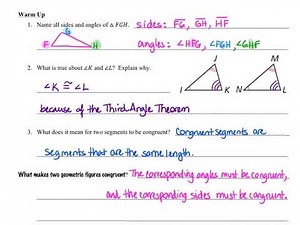 Warm Up
1. Name all sides and angles of △ FGH. sides: FG, GH, HF
G
F H
angles: ∠HFG, ∠FGH, ∠GHF
2. What is true about ∠K and ∠L? Explain why.
J M
∠K ≅ ∠L
I K N L
because of the Third Angle Theorem
3. What does it mean for two segments to be congruent? Congruent segments are
segments that are the same length.
What makes two geometric figures congruent? The corresponding angles must be congruent,
and the corresponding sides must be congruent.